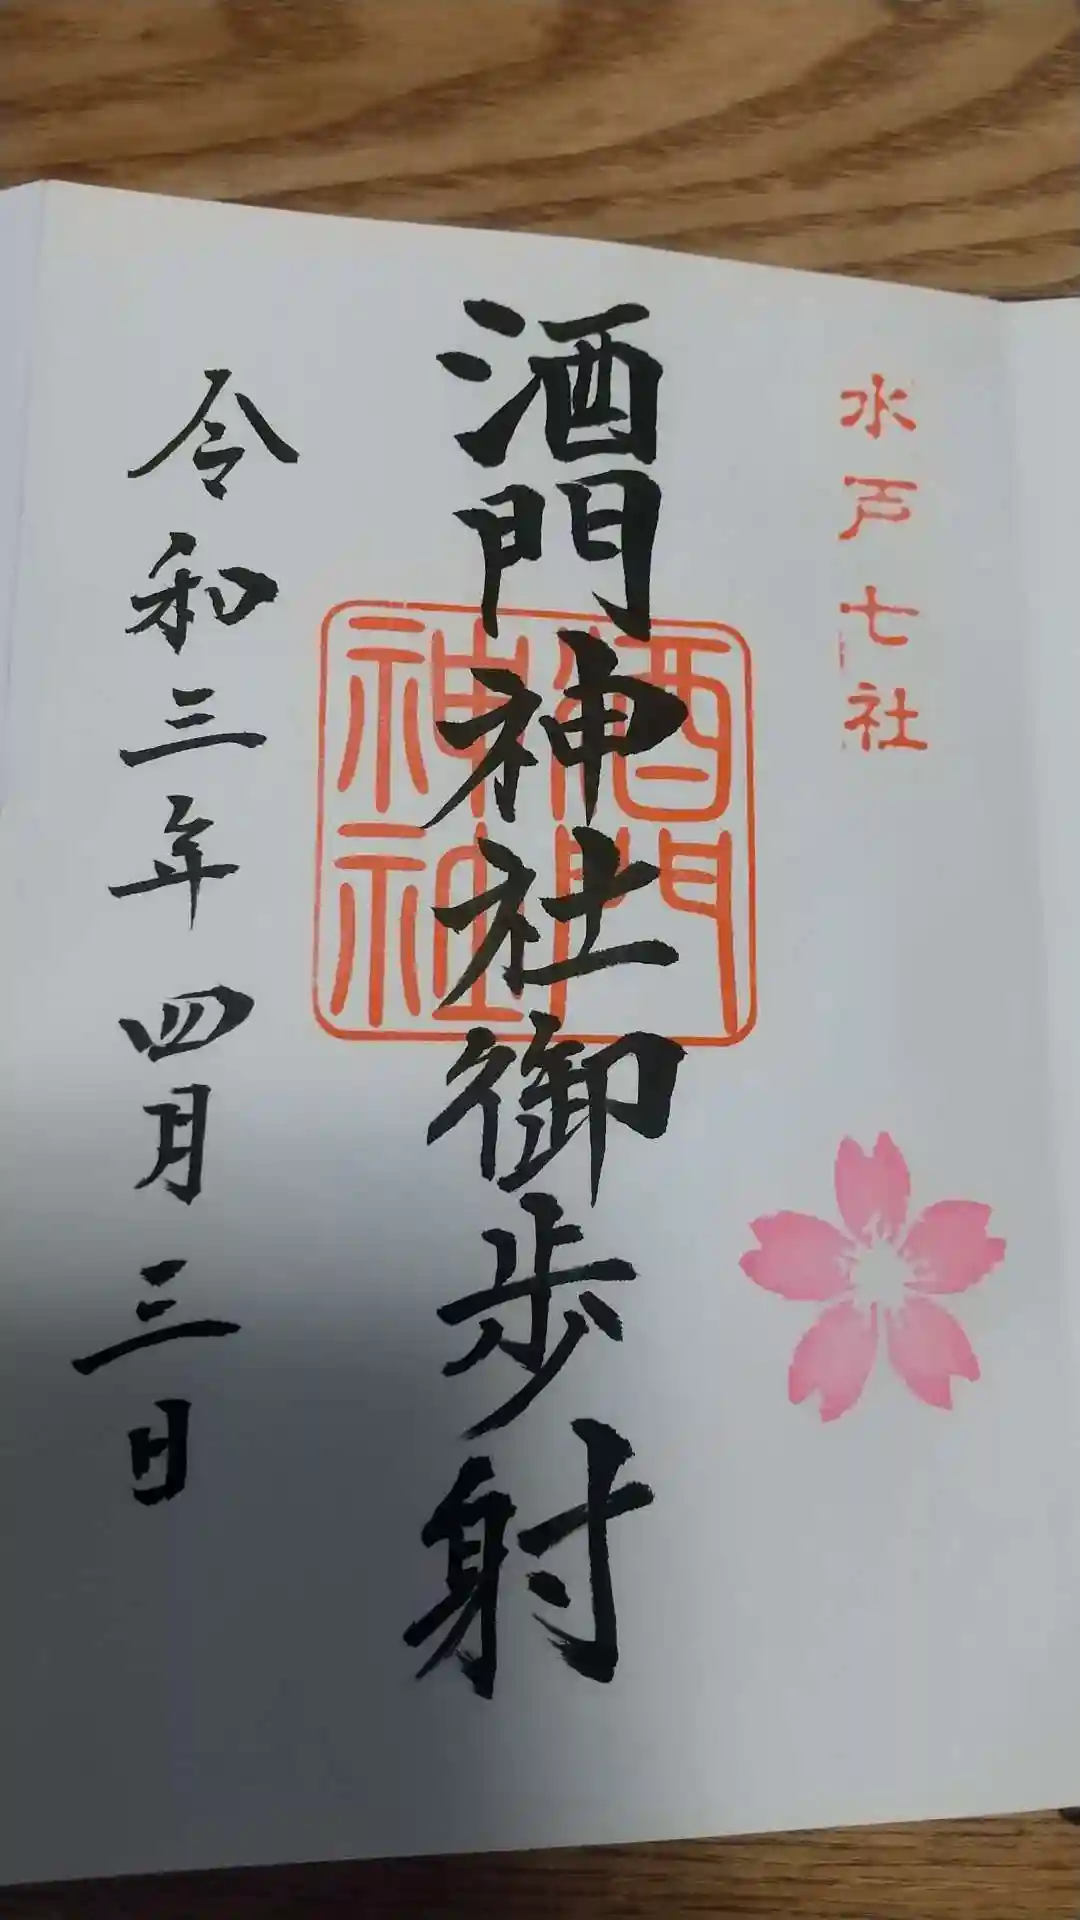 水戸七社
酒門神社御歩射
酒門
神社
令和三年四月三日